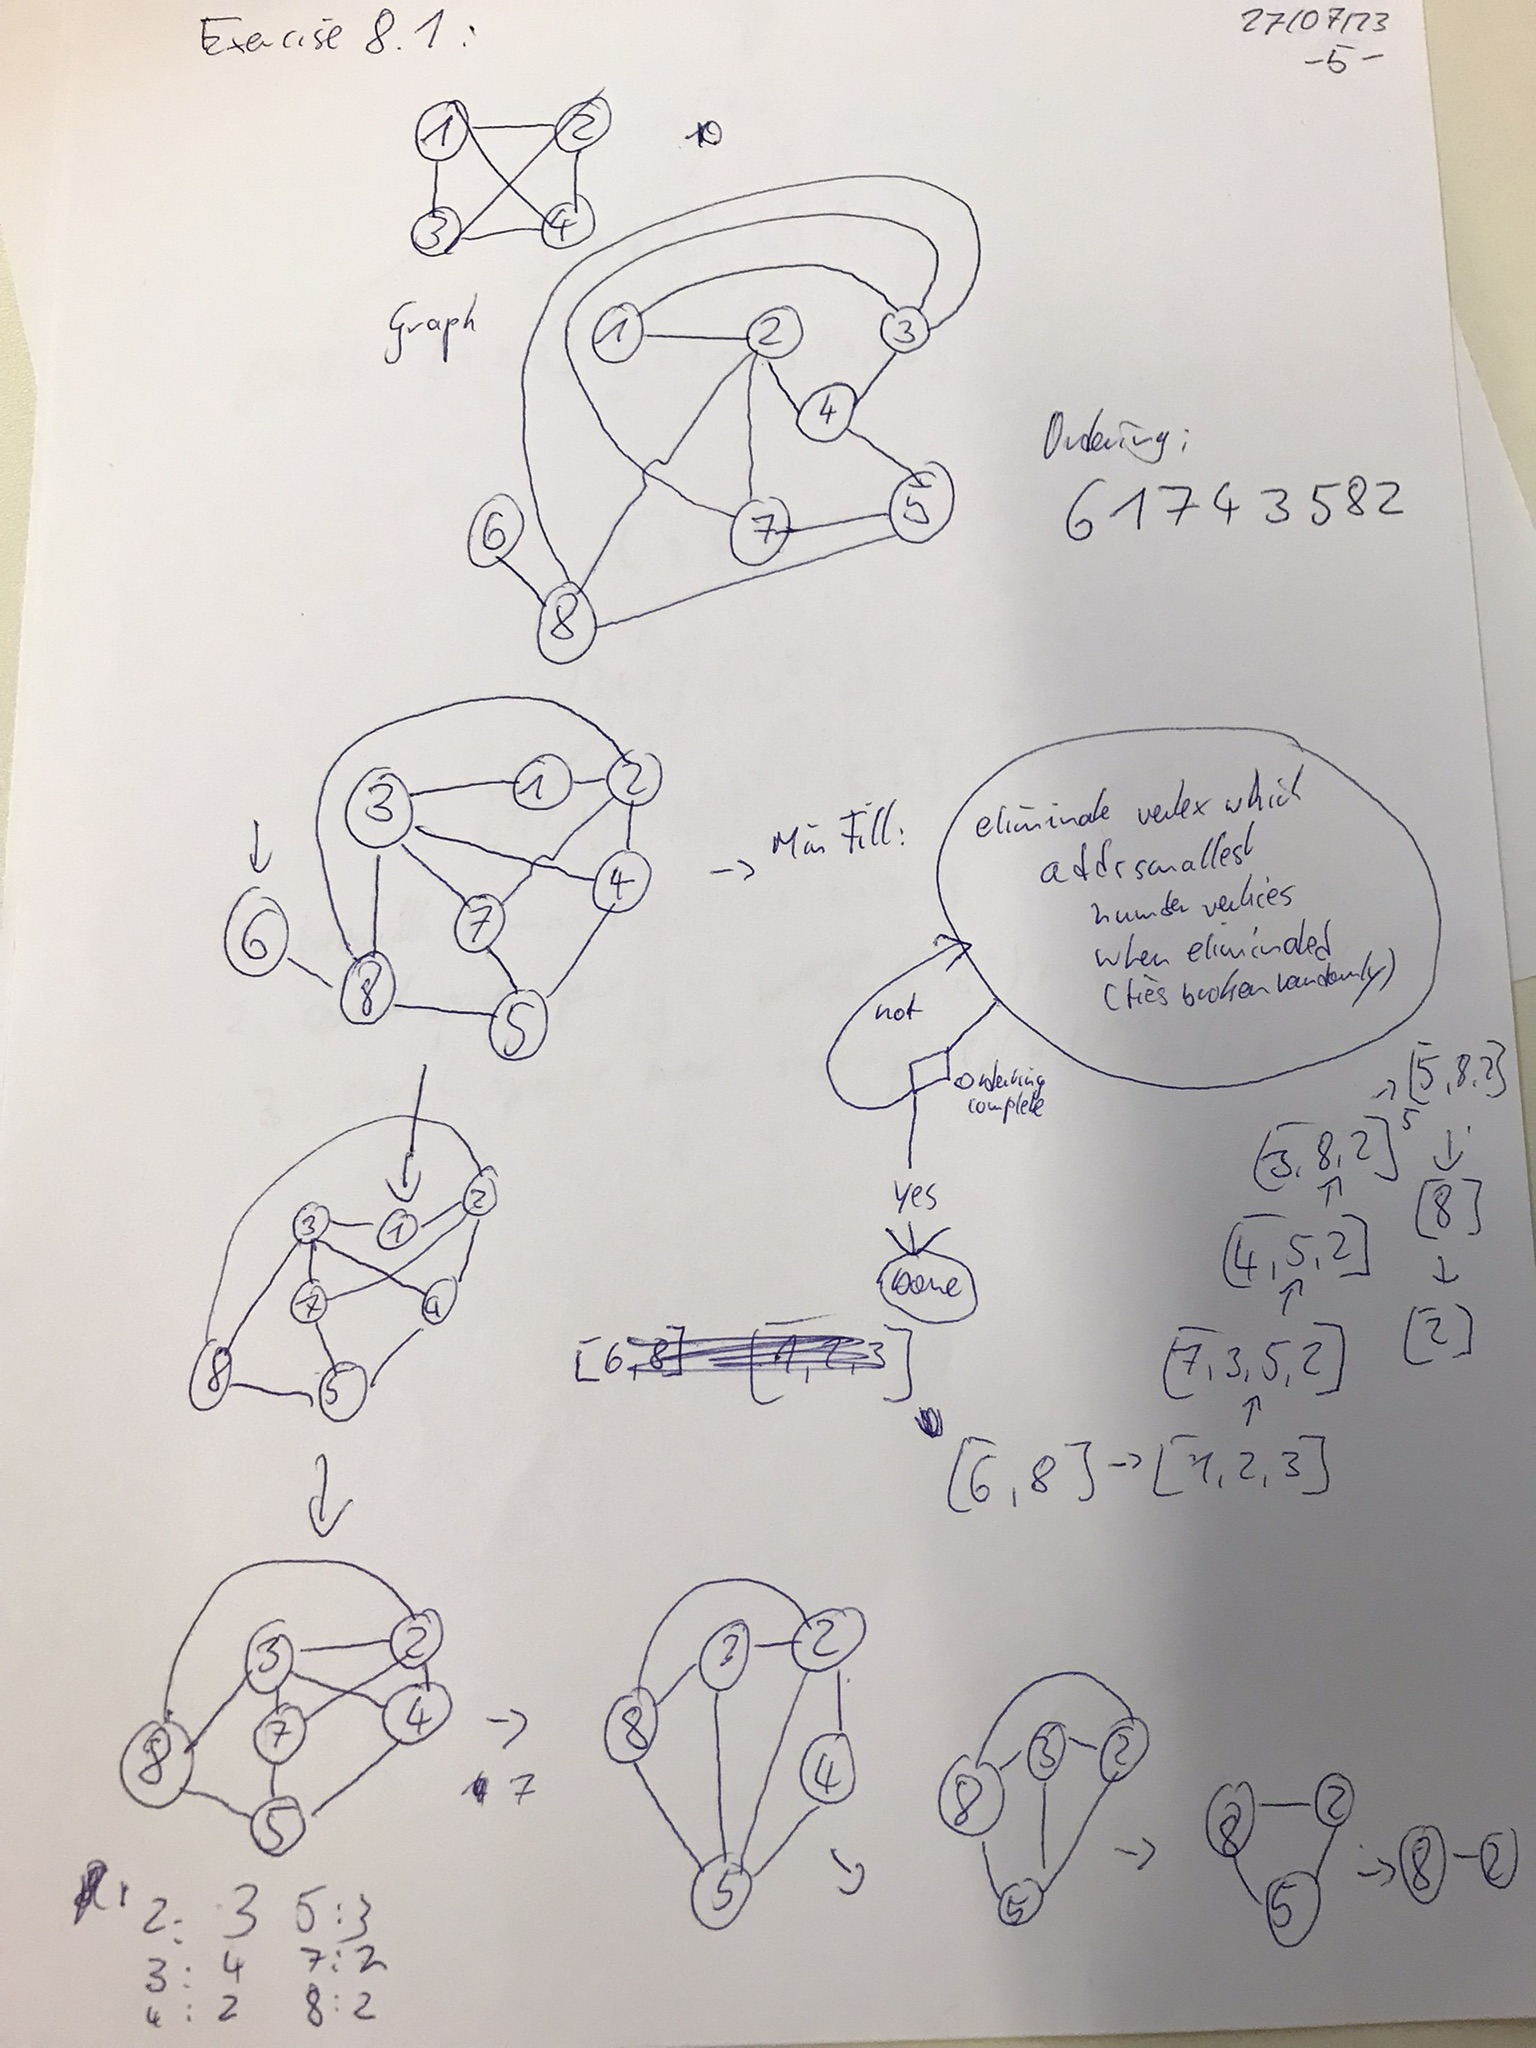 Exercise 8.1:
27/07/23
-5-
1 2
3 4
Graph
1 2 3
4
5
6 7
8
Ordering:
6 1 7 4 3 5 8 2
3 1 2
4
6 7
8 5
→ Min Fill:
eliminate vertex which
adds smallest
number vertices
when eliminated
(ties broken randomly)
not
ordering
complete
yes
Done
3 1 2
7 4
8 5
→ [5,8,2]
[3,8,2] 5
[8]
[4,5,2]
[2]
[7,3,5,2]
[6
[6,8] → [1,2,3]
3 2
7 4
8
5
→
7
3 2
8
4
5
8 3 2
5
→
8 2
5
→ 8 - 2
2: 3 5:3
3: 4 7:2
4: 2 8:2